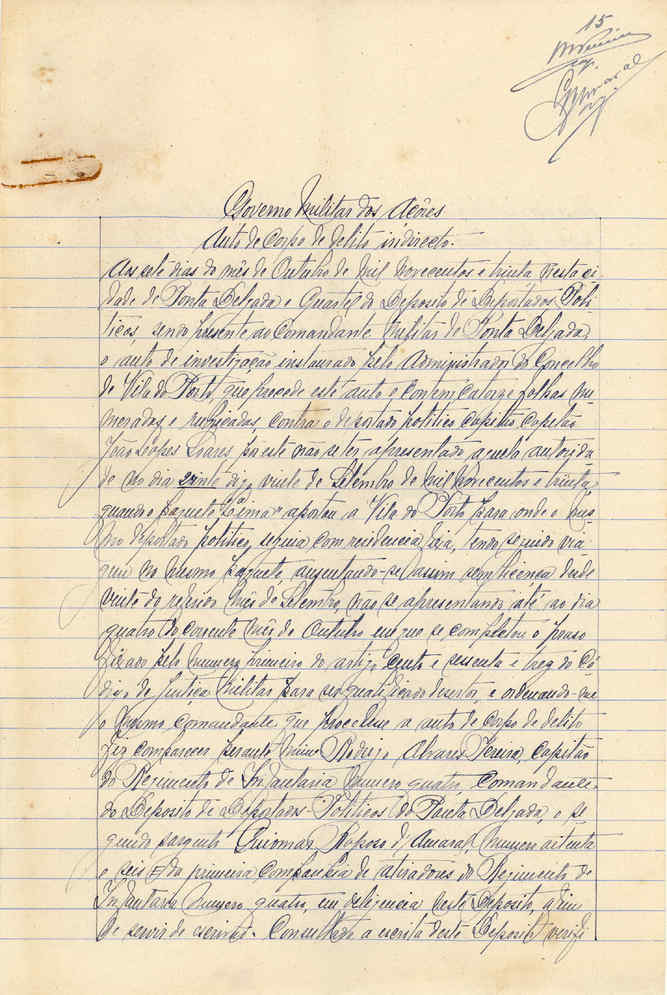 15
Governo Militar dos Açôres
Auto de Corpo de delito indirecto.
Aos sete dias do mês de Outubro de mil novecentos e trinta nesta ci-
dade de Ponta Delgada e Quartel do Deposito de Deportados Poli-
ticos, sendo presente ao Comandante Militar de Ponta Delgada,
o auto de investigação instaurado pelo Administrador do Concelho
de Vila do Porto, que precede este auto e contem catorze folhas nu-
meradas e rubricadas, contra o deportado politico capitão capelão
João Lopes Soares, por este não se ter apresentado aquela autorida
de no dia vinte digo vinte de Setembro de mil novecentos e trinta,
quando o paquete "Lima" aportou a Vila do Porto para onde o mes-
mo deportado politico seguia com residencia fixa, tendo seguido via-
gem no mesmo paquete, ausentando-se assim sem licença desde
vinte do referido mês de Setembro, não se apresentando até ao dia
quatro do corrente mês de Outubro em que se completou o praso
fixado pelo numero primeiro do artigo cento e sessenta e trez do Có-
digo de Justiça Militar para ser qualificado desertor, e ordenando-me
o mesmo Comandante que procedesse a auto de corpo de delito
fiz comparecer perante mim Rodrigo Alvares Pereira, capitão
do Regimento de Infantaria numero quatro, comandante
do Deposito de Deportados Politicos de Ponta Delgada, o se-
gundo sargento Guiomar Raposo d'Amaral numero oitenta
e seis da primeira companhia de atiradores do Regimento de
Infantaria numero quatro, em deligencia neste Deposito, afim
de servir de escrivão. Consultada a escrita deste Deposito verifi